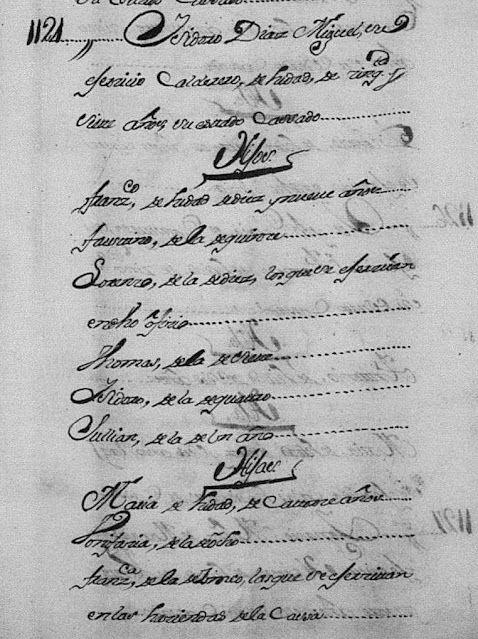 1121 " Isidoro Diaz Miguel, su
exercicio Calderero, de hedad, de zinq.ta y
siete años, su estado Cassado
Hijos
Franz.co, de hedad de diez y nueve años
Faustino, de la de quinze
Lorenzo, de la de diez, los que se exercitan
en dho ofizio
Thomas, de la de siete
Isidoro, de la de quatro
Jullian, de la de un año
Hijas
Maria de hedad, de Catorze años
Bonifazia, de la de ocho
Franz.ca, de la de cinco, las que se exercitan
en las haziendas de la Cassa